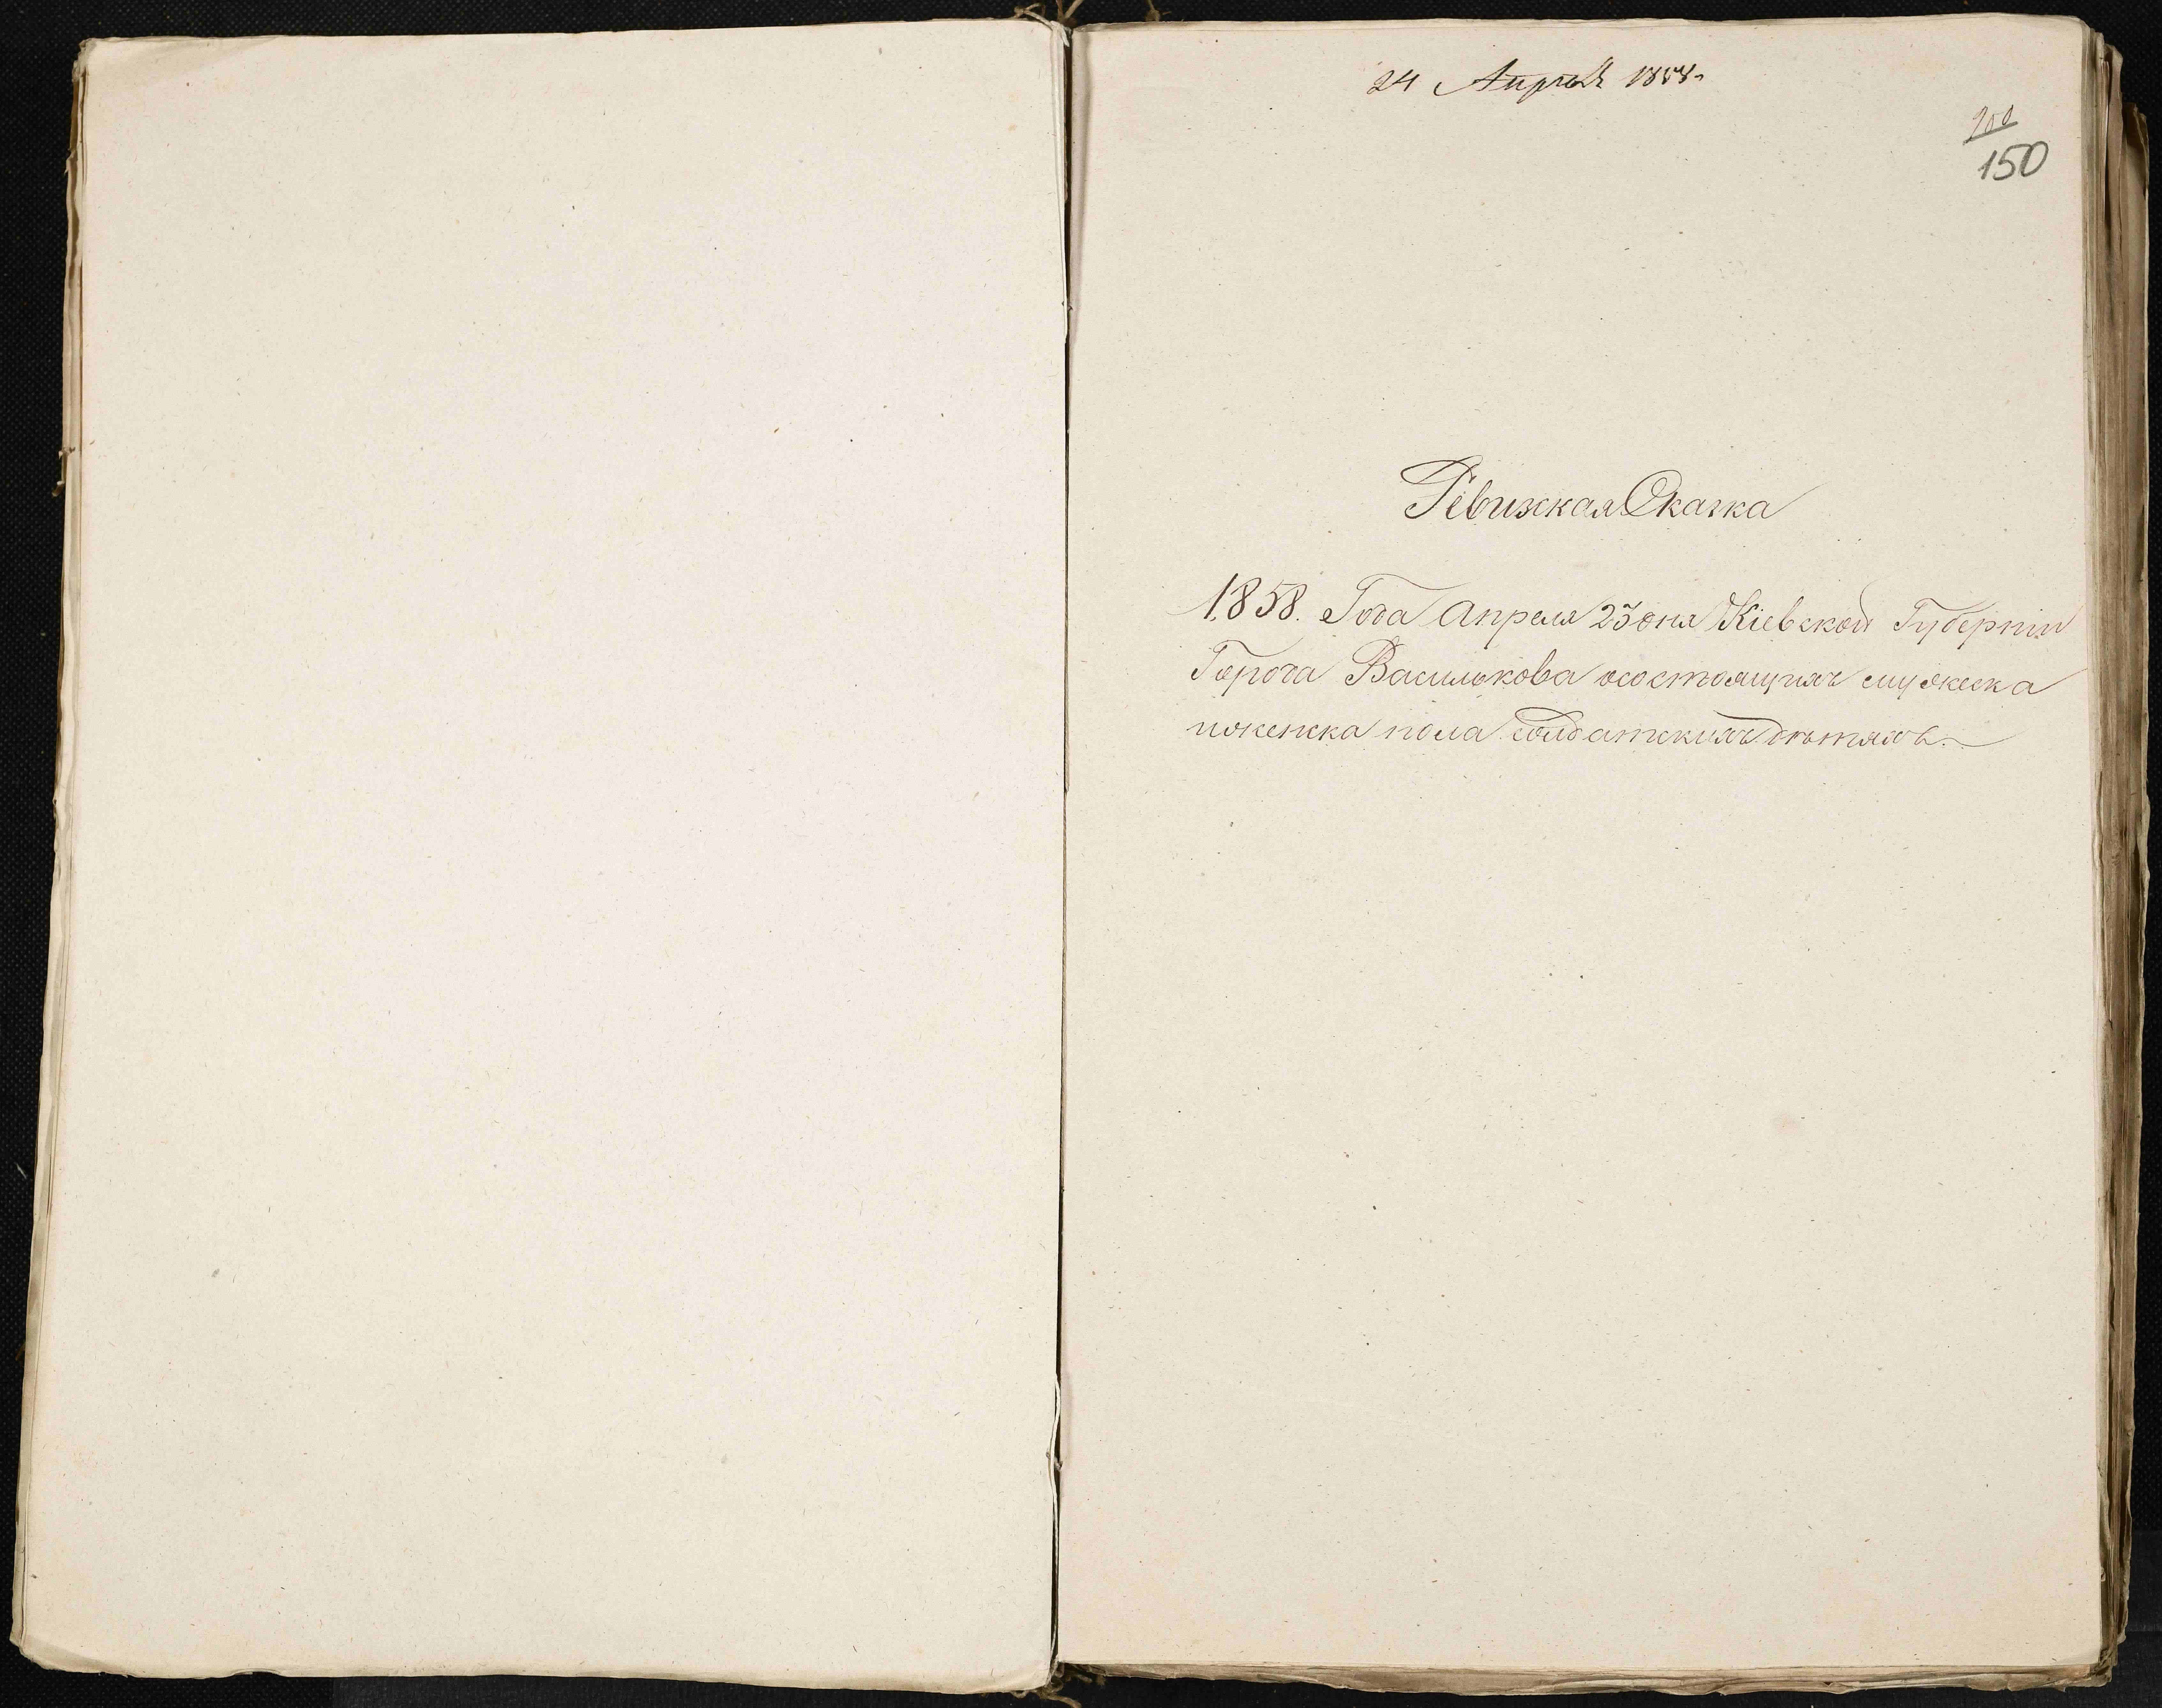 24 Апрѣля 1858.
150
Ревизская Сказка
1858. Года Апреля 23 дня Кіевской Губерніи
Города Василькова осостоящихъ мужеска
иженска пола солдатскихъ дѣтяхъ.